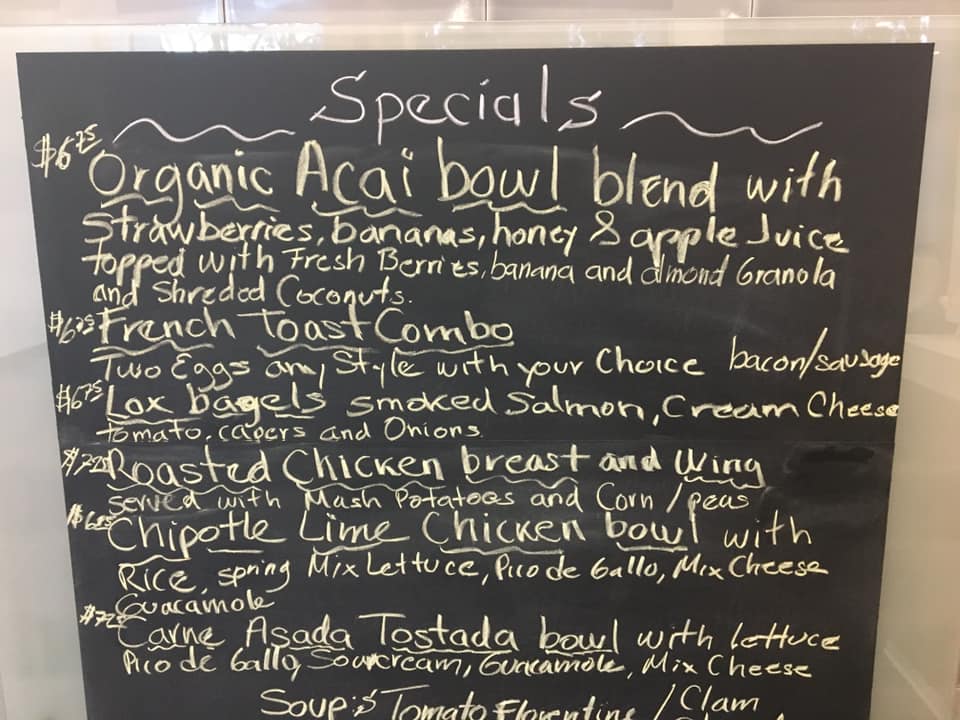 Specials
$6.75
Organic Acai bowl blend with
Strawberries, bananas, honey & apple Juice
topped with Fresh Berries, banana and almond Granola
and Shreded Coconuts.
$6.75 French Toast Combo
Two Eggs any Style with your Choice bacon/sausage
$6.75 Lox bagels smoked Salmon, Cream Cheese
tomato, capers and Onions
$7.25 Roasted Chicken breast and Wing
served with Mash Potatoes and Corn / peas
Chipotle Lime Chicken bowl with
Rice, spring Mix Lettuce, Pico de Gallo, Mix Cheese
Guacamole
$7.25 Carne Asada Tostada bowl with lettuce
Pico de Gallo, Sourcream, Guacamole, Mix Cheese
Soup:s Tomato Florentine / Clam